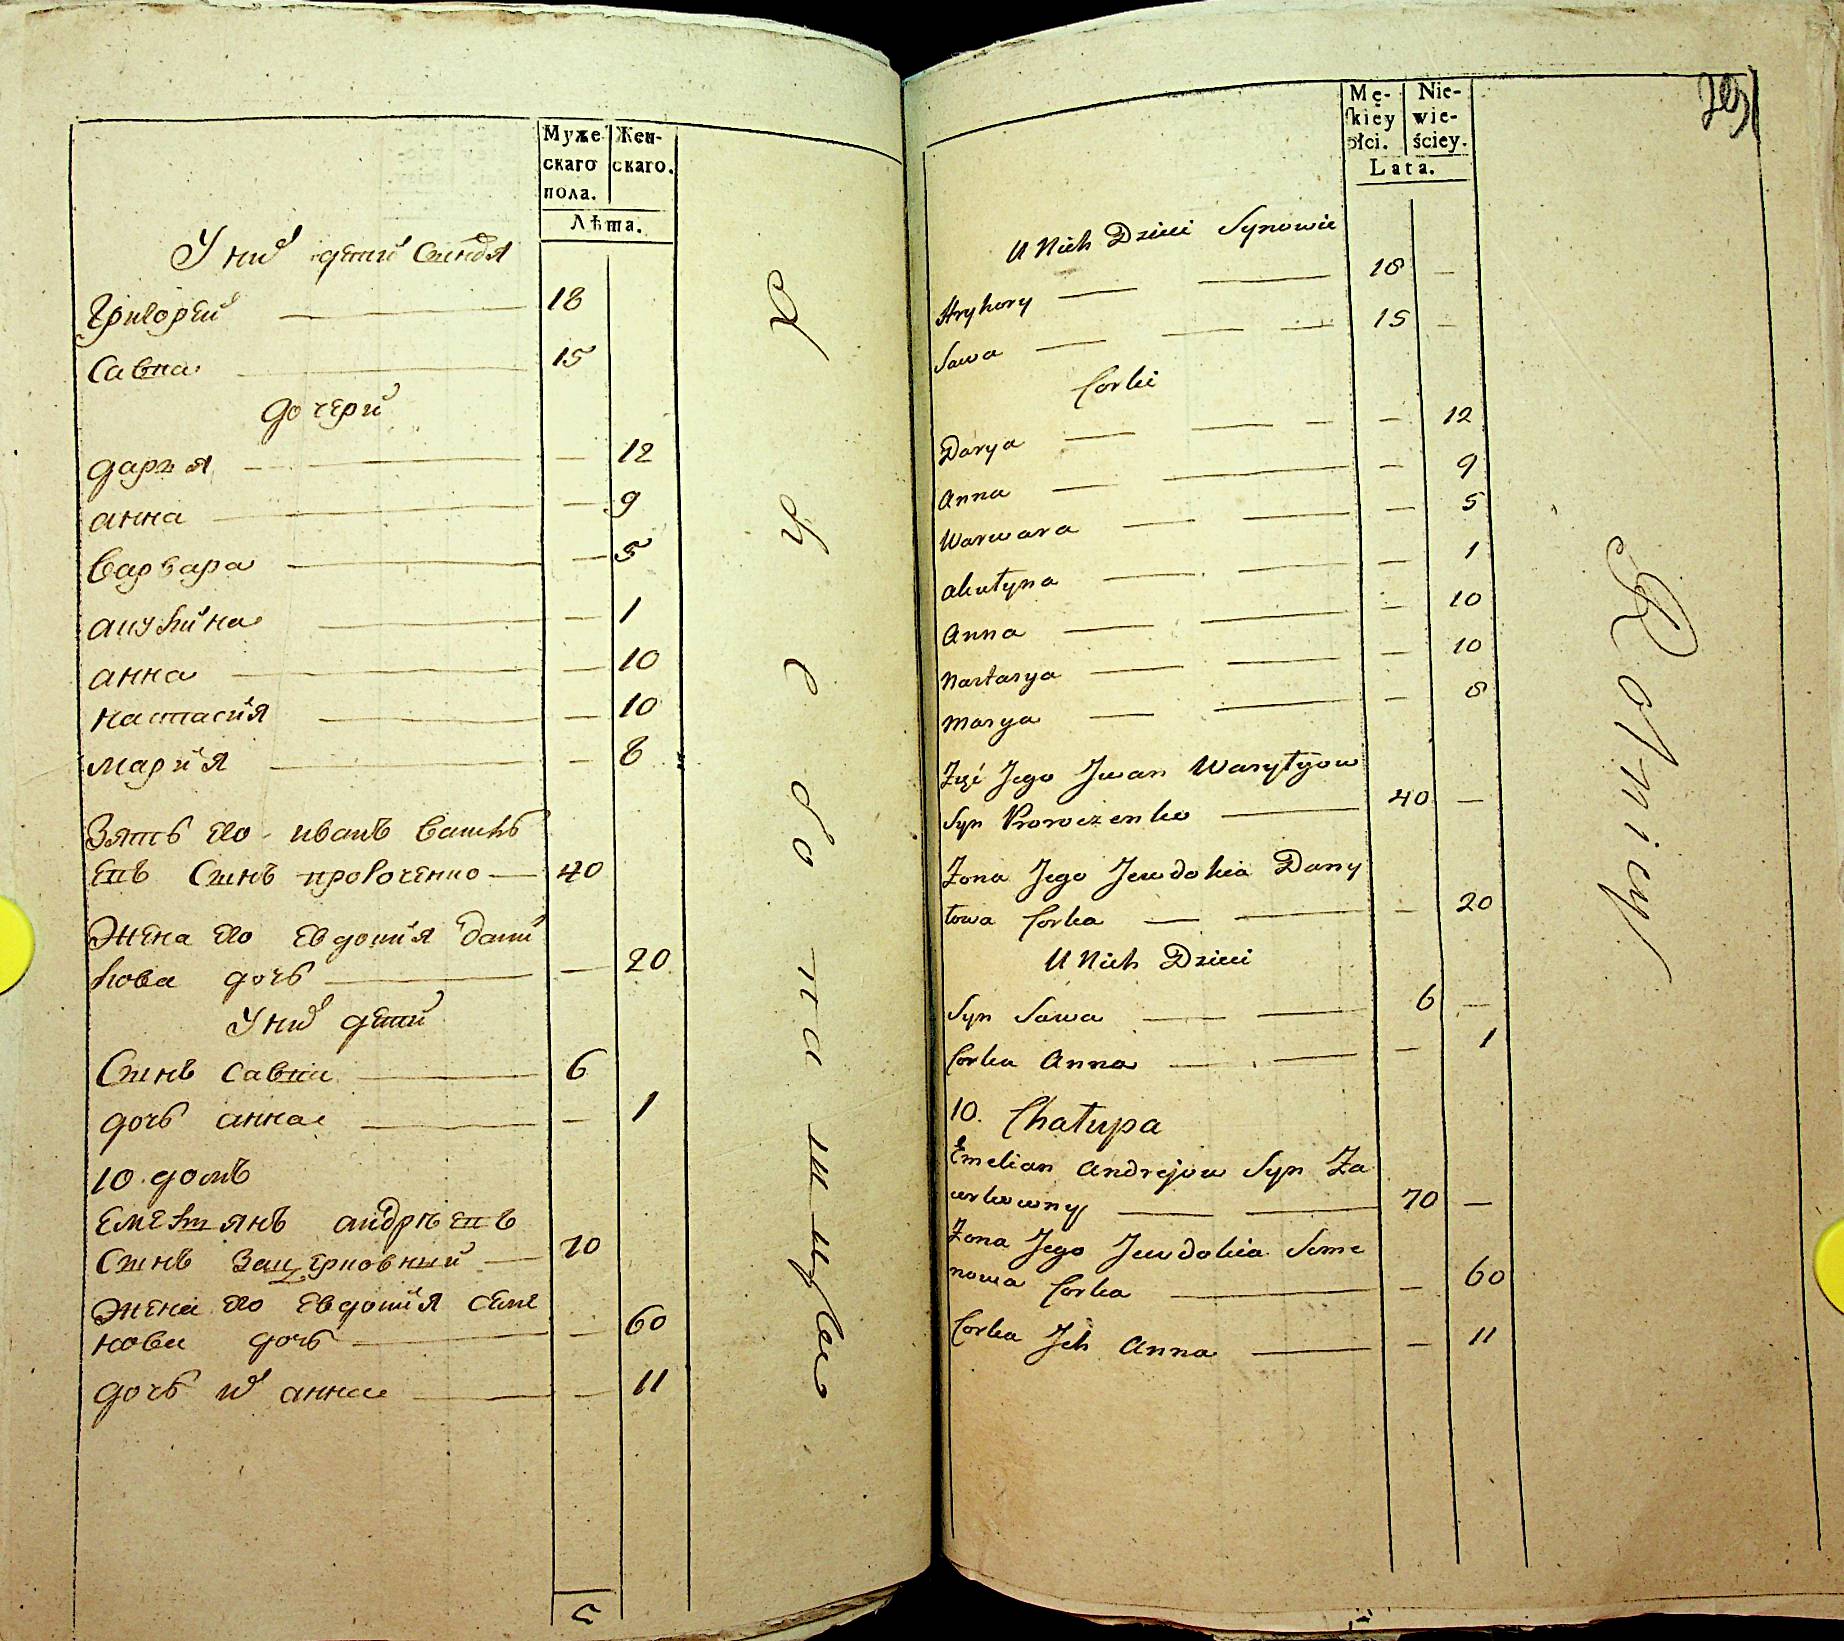 Муже
скаго
пола.
Жен-
скаго.
Лѣта.
У них детей Синовя
Григорей 18
Савка 15
дочери
даря 12
анна 9
варвара 5
акулина 1
анна 10
настасия 10
мария 8
Зять его иванъ василь
евъ Синъ проваченко 40
Жена его евдокия дани
лова дочь 20
У них дети
Синъ савка 6
дочь анна 1
10. домъ
емельянъ андреевъ
Синъ 70
Жена его евдокия семе
нова дочь 60
дочь их анна 11
Mę-
kiey
płci.
Nie-
wie-
ściey.
Lata.
U Nich Dzieci Synowie
Hryhory 18
Sawa 15
Corki
Darya 12
Anna 9
Warwara 5
Akulyna 1
Anna 10
Nastasya 10
Marya 8
Zięć Jego Jwan Wasylyow
Syn 40
Żona Jego Jewdokia Dany
lowa Corka 20
U Nich Dzieci
Syn Sawa 6
Corka Anna 1
10. Chalupa
Emelian Andrejow Syn Za
70
Żona Jego Jewdokia Seme
nowa Corka 60
Corka Jch Anna 11
Rolnicy